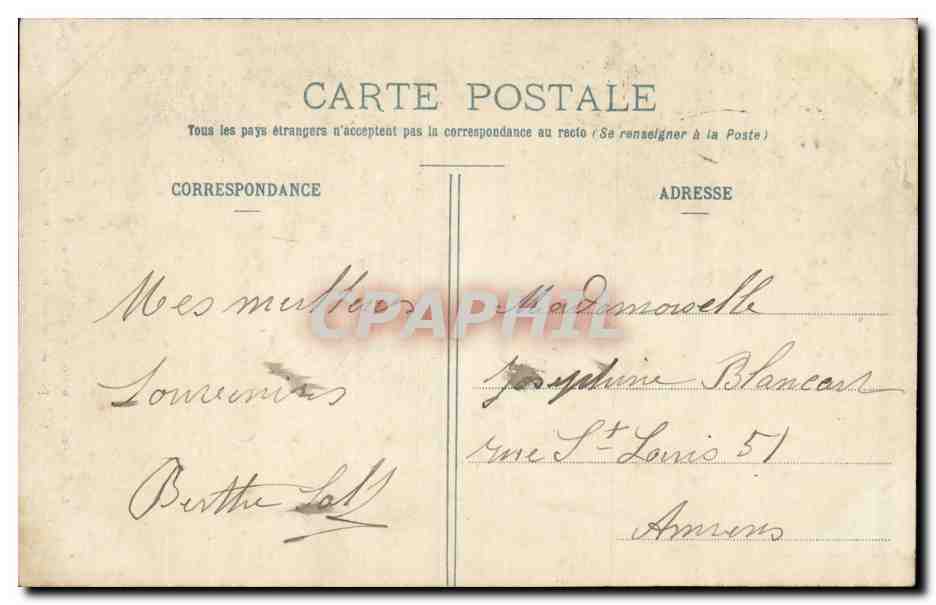 CARTE POSTALE
Tous les pays étrangers n'acceptent pas la correspondance au recto (Se renseigner à la Poste)
CORRESPONDANCE
Mes meilleurs
Souvenirs
Berthe
ADRESSE
Mademoiselle
Josephine Blancart
rue St Louis 51
Amiens
CPAPHIL